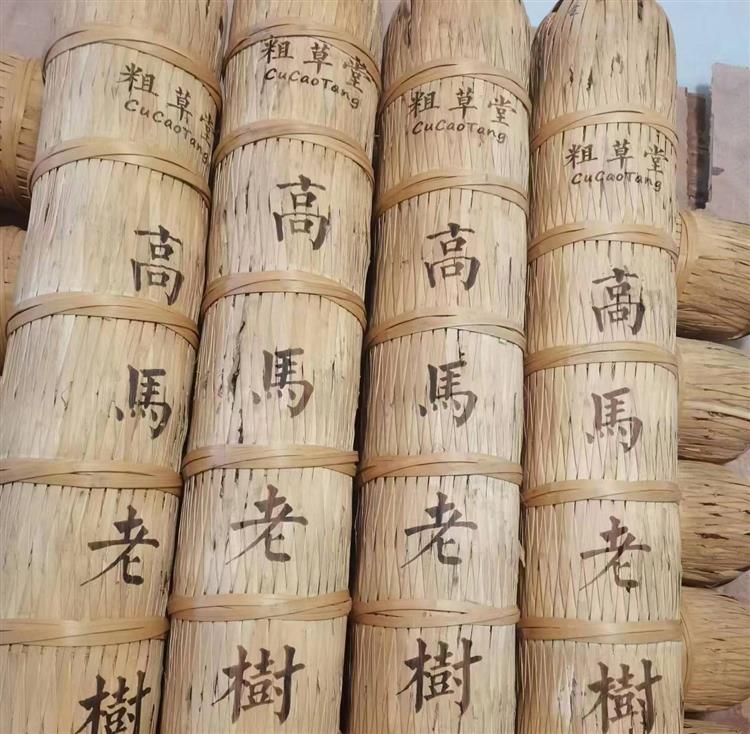 粗草堂
CuCaoTang
高
馬
老
樹
粗草堂
CuCaoTang
高
馬
老
樹
粗草堂
CuCaoTang
高
馬
老
樹
粗草堂
CuCaoTang
高
馬
老
樹